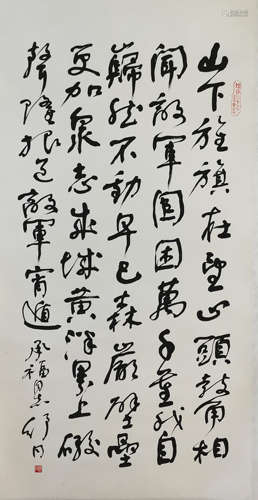 山下旌旗在望山頭鼓角相
聞敵軍圍困萬千重我自
巋然不動早已森嚴壁壘
更加眾志成城黃洋界上礮
聲隆報道敵軍宵遁
承福同志 舒同